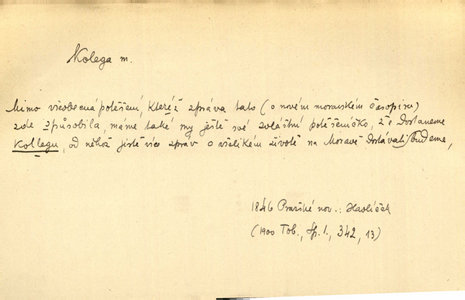 Kolega m.
Mimo všeobecná potěšení, kteréž zpráva tato (o novém moravském časopisu)
zde způsobila, máme také my ještě své zvláštní potěšeníčko, že dostaneme
kollegu, od něhož jistě více zpráv o všelikém životě na Moravě dostávati budeme,
1846 Pražské nov.: Havlíček
(1900 Tob., Sp. I., 342, 13)